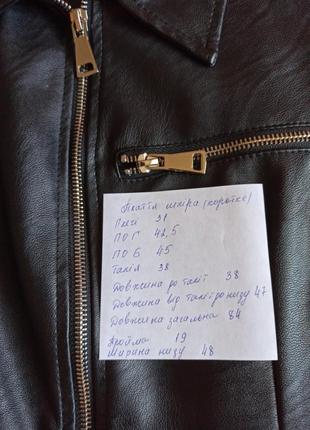 Плаття шкіра (коротке)
Плечі 31
ПОГ 42,5
ПОБ 45
Талія 38
Довжина до талії 38
Довжина від талії до низу 47
Довжина загальна 84
Пройма 19
Ширина низу 48